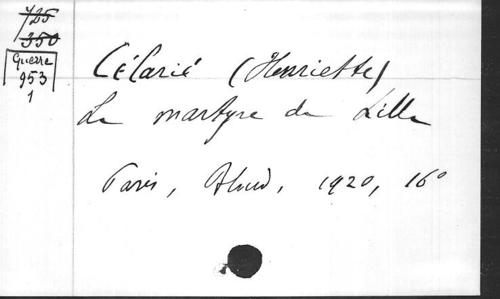 725
350
Guerre
953
1
Célarié (Henriette)
Le martyre de Lille
Paris, Bloud, 1920, 16°